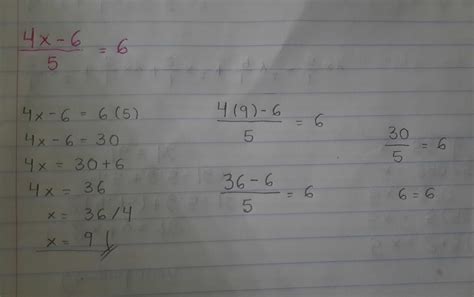 4x-6/5 = 6
4x-6 = 6(5)
4x-6 = 30
4x = 30+6
4x = 36
x = 36/4
x = 9
4(9)-6/5 = 6
36-6/5 = 6
30/5 = 6
6=6